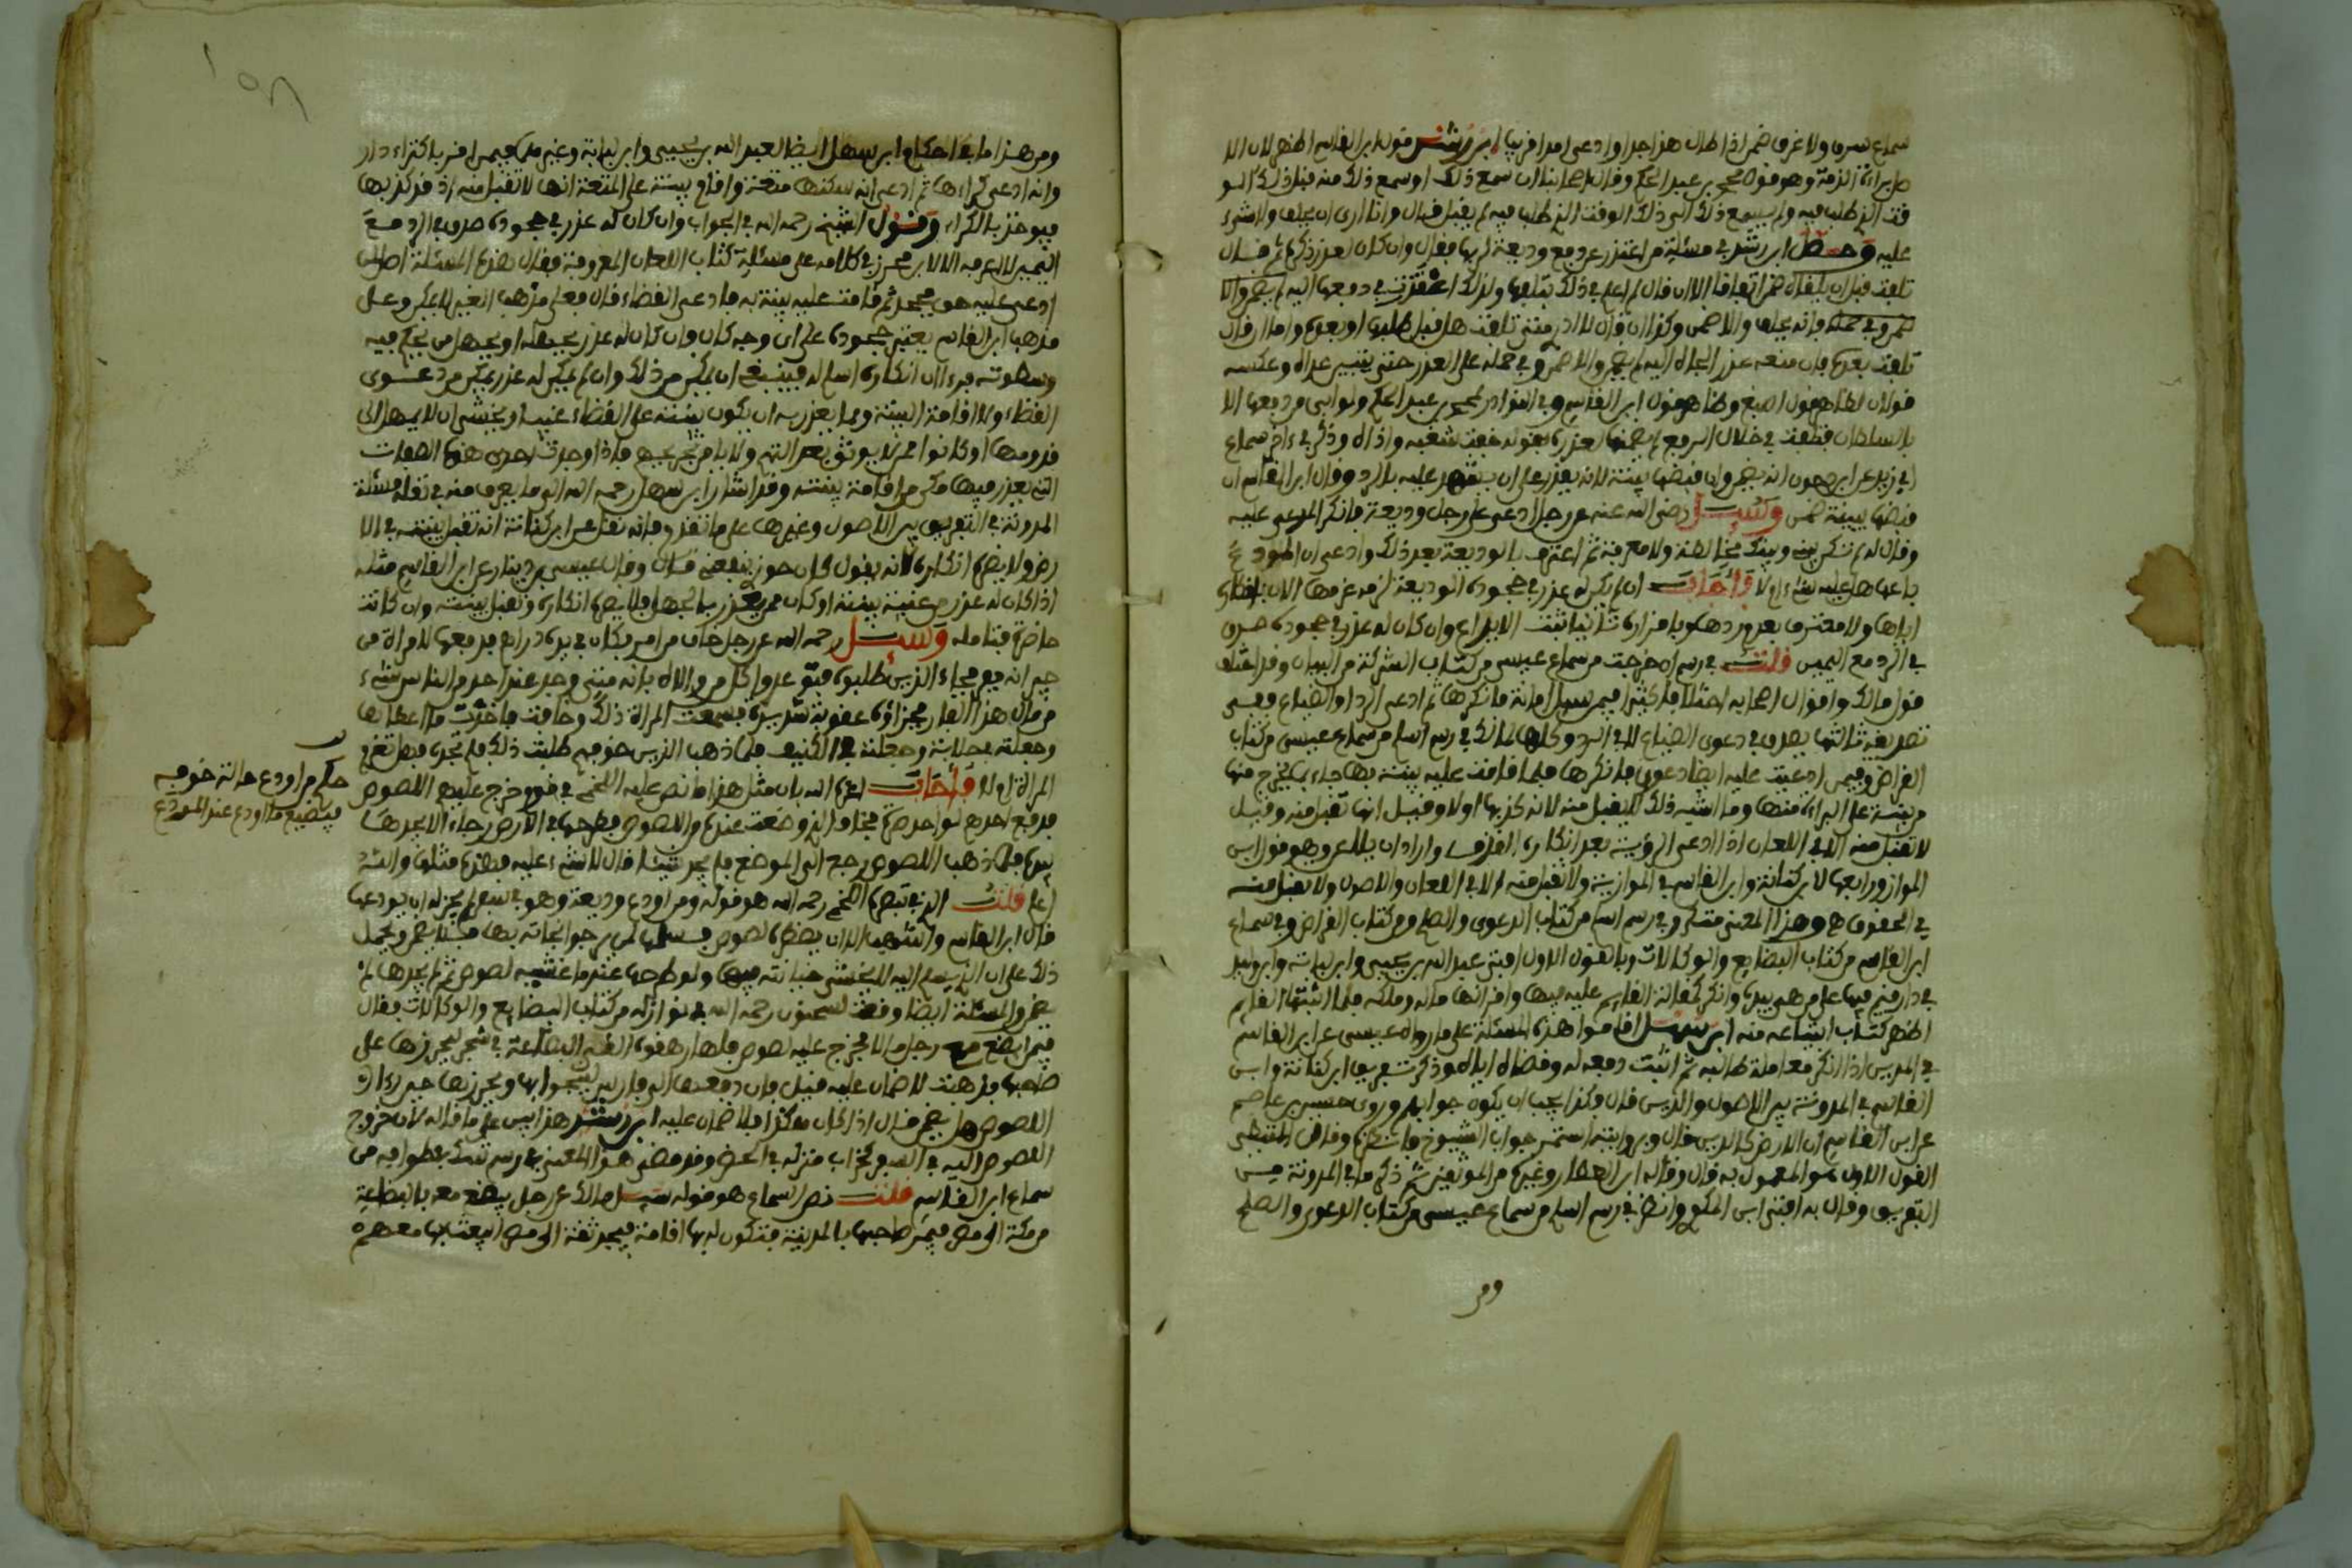 سماع سرق ولا غرق ضمن اذا طال هذا جدا وادعى امرا قريبا ابن رشد قول ابن القاسم اظهر لان الا
صل براءة الذمة وهو قول محمد بن عبد الحكم وقال اصحابنا ان سمع ذلك او سمع ذلك منه قبل ذلك الو
قت الذي طلب فيه ولم يسمع ذلك الى ذلك الوقت الذي طلب فيه لم يقبل قال وانا ارى ان يحلف ولا شيء
عليه وحصل ابن رشد في مسئلة من اعتذر عن دفع وديعة لربها فقال وان كان لعذر ذكره ثم قال
تلفت قبل ان يلقاه ضمن اتفاقا الا ان قال لم اعلم في ذلك تلفها ولذلك اعتذرت في دفعها اليه لم يضمن الا
فانه يحلف ولا ضمن وكذا ان قال لا ادري متى تلفت هل قبل طلبها او بعده واما ان قال
تلفت بعده فان منعه عذر الجاه اليه لم يضمن والا ضمن وفي حمله على العذر حتى يتبين عداه وعكسه
قولان لظاهر قول اصبغ وظاهر قول ابن القاسم وفي النوادر لمحمد بن عبد الحكم ولو ابى من دفعها الا
بالسلطان فتلفت في خلال الرفع لم يضمنها لعذره بقوله خفت شغبه واذاه وذكر في اخر سماع
ابي زيد عن ابن دحون انه يضمن وان قبضها ببينة لانه يقدر على ان يشهد عليه بالرد وقال ابن القاسم ان
قبضها ببينة ضمن وسئل رضي الله عنه عن رجل ادعى على رجل وديعة فانكر المدعى عليه
وقال له لم تكن بيني وبينك مخالطة ولا معرفة ثم اعترف بالوديعة بعد ذلك وادعى ان المودع
باعها هل عليه شيء اولا فاجاب ان لم يكن له عذر في جحوده الوديعة لزمه غرمها الان بانكاره
اياها ولا معترف بعد ردها وباقراره ثانيا ثبت الايداع وان كان له عذر في جحوده صدق
في الرد مع اليمين قلت في رسم ان خرجت من سماع عيسى من كتاب الشركة من البيان وقد اختلف
قول مالك واقوال اصحابه اختلافا كثيرا فيمن سئل امانة فانكرها ثم ادعى الرد او الضياع ففي
تصديقه ثالثها يصدق في دعوى الضياع لا في الرد وكلها لمالك في رسم اسلم من سماع عيسى من كتاب
القراض وفيمن ادعيت عليه ايضا دعوى فانكرها فلما قامت عليه بينة بها جاء بالمخرج منها
من بينة على البراءة منها وما اشبه ذلك لم يقبل منه لانه كذبها اولا وقيل انها تقبل منه وقيل
لا تقبل منه الا في اللعان اذا ادعى الرؤية بعد انكاره القذف واراد ان يلاعن وهو قول ابن
المواز ورابعها لابن كنانة وابن القاسم في الموازية ولا تقبل منه الا في اللعان والاصول ولا تقبل منه
في الحقوق وهذا المعنى متكرر في رسم اسلم من كتاب الدعوى والصلح ومن كتاب القراض وفي سماع
ابن القاسم من كتاب البضايع والوكالات وبالقول الاول افتى عبد الله بن يحيى وابن لبابة وابن وليد
في دار قيم فيها على من هي بيده وانكر كفالة القايم عليه فيها واقر انها ماله وملكه فلما اثبتها القايم
اظهر كتاب ابتياعه منه ابن سهل اقاموا هذه المسئلة على ما رواه عيسى عن ابن القاسم
في المديان اذا انكر معاملة طالبه ثم اثبت دفعه له وقضاه اياه وذكر تفريق ابن كنانة وابن
القاسم في المدونة بين الاصول والدين قال وكذا يجب ان يكون جوابهم وروى حسين بن عاصم
عن ابن القاسم ان الارض كالدين قال وبروايته استمر جواب الشيوخ وقال المتيطي
القول الاول هو المعمول به قال وقاله ابن العطار وغيره من الموثقين ثم ذكر ما في المدونة من
التفريق وقال به افتى ابن المكوي وانظر في رسم اسلم من سماع عيسى من كتاب الدعوى والصلح
ومن
ومن هذا ما في احكام ابن سهل ايضا لعبد الله بن يحيى وابن لبابة وغيرهما فيمن اقر باكتراء دار
وانه ادعى كراءها ثم ادعى انه سكنها متعة واقام بينة على المتعة انها لا تقبل منه اذ قد كذبها
فيوخذ بالكراء وقول الشيخ رحمه الله في الجواب وان كان له عذر في جحوده صدق في الرد مع
اليمين لا اعرفه الا لابن محرز في كلامه على مسئلة كتاب اللعان المعروفة فقال هذه المسئلة اصل من
ادعي عليه حق فجحد ثم قامت عليه بينة به فادعى القضاء قال فعلى مذهب الغير لا يمكن وعلى
مذهب ابن القاسم يعتبر جحوده على اي وجه كان فان كان له عذر يجهله او يجهل من يحكم فيه
وسطوته فرءا ان انكاره اسلم له فينبغي ان يمكن من ذلك وان لم يكن له عذر لم يمكن من دعوى
القضاء ولا اقامة البينة ومما يعذر به ان يكون بينته على القضاء غيبا ويخشى ان لا يصل الى
قدومها او كانوا ممن لا يوثق بحد التهم ولا يامن تجريحهم فاذا وجدت احدى هذه الصفات
التي يعذر فيها مكن من اقامة بينته وقد اشار ابن سهل رحمه الله الى ما يعرف منه في نقله مسئلة
المدونة في التفريق بين الاصول وغيرها على ما تقدم فانه نقل عن ابن كنانة انه تقبل بينته في الا
رض ولا يضره انكاره لانه يقول كان حوزي ينفعني قال وقال عيسى بن دينار عن ابن القاسم مثله
اذا كان له عذر من غيبة بينة او كان ممن يعذر بالجهل فلا يضره انكاره وتقبل بينته وان كانت
حاضرة فتامله وسئل رحمه الله عن رجل خاف من امر فكان في يده دراهم فدفعها لامراة من
جيرانه فجاء الذين طلبوه فتوعدوا كل من والاه بانه متى وجد عند احد من الناس شيء
من مال هذا الفار فجزاؤه عقوبة شديدة فسمعت المراة ذلك وخافت فاخذت ما اعطاها
وجعلته في جلابة وجعلته في الكنيف فلما ذهب الذين خوفهم طلبت ذلك فلم تجده فهل تغرم
المراة ام لا فاجاب اعزه الله بان مثل هذا ما نص عليه اللخمي في قوم خرج عليهم اللصوص
فدفع احدهم لواحد صرة فخاف الذي وضعت عنده من اللصوص فطرحها في الارض رجاء الا يجدها
بيده فلما ذهب اللصوص رجع الى الموضع فلم يجد شيئا قال لا شيء عليه فهذه مثلها والله
اعلم قلت الذي في تبصرة اللخمي رحمه الله هو قوله ومن اودع وديعة وهو في سفر لم يجز له ان يودعها
قال ابن القاسم واشهب الا ان يحضره لصوص فسلمها لمن يرجو نجاته بها فلا يضمن ويحمل
ذلك على ان الذي سلم اليه لا يخشى خيانته فيها ولو طرحها عندما غشيه لصوص ثم لم يجدها لم
يضمن والمسئلة ايضا وقعت لسحنون رحمه الله في نوازله من كتاب البضايع والوكالات فقال
فيمن ابضع مع رجل مالا فخرج عليه لصوص فلما رهقوه القى البضاعة في شجر ليحرزها على
صاحبها فذهبت لا ضمان عليه قيل فان دفعها الى فارس لينجو بها ويحرزها حين راى
اللصوص هل يضمن قال اذا كان هكذا فلا ضمان عليه ابن رشد هذا بين على ما قاله لان خروج
اللصوص اليه في السفر كخراب منزله في الحضر وقد مضى هذا المعنى في رسم شك في طوافه من
سماع ابن القاسم قلت نص السماع هو قوله سئل مالك عن رجل يبضع معه بالبضاعة
من مكة الى مصر فيمر صاحبها بالمدينة فتكون له بها اقامة فيجد ثقة الى مصر ايبعث بها معهم
حكم من اودع حالة خوفه
فيضيع ما اودع عند المودع